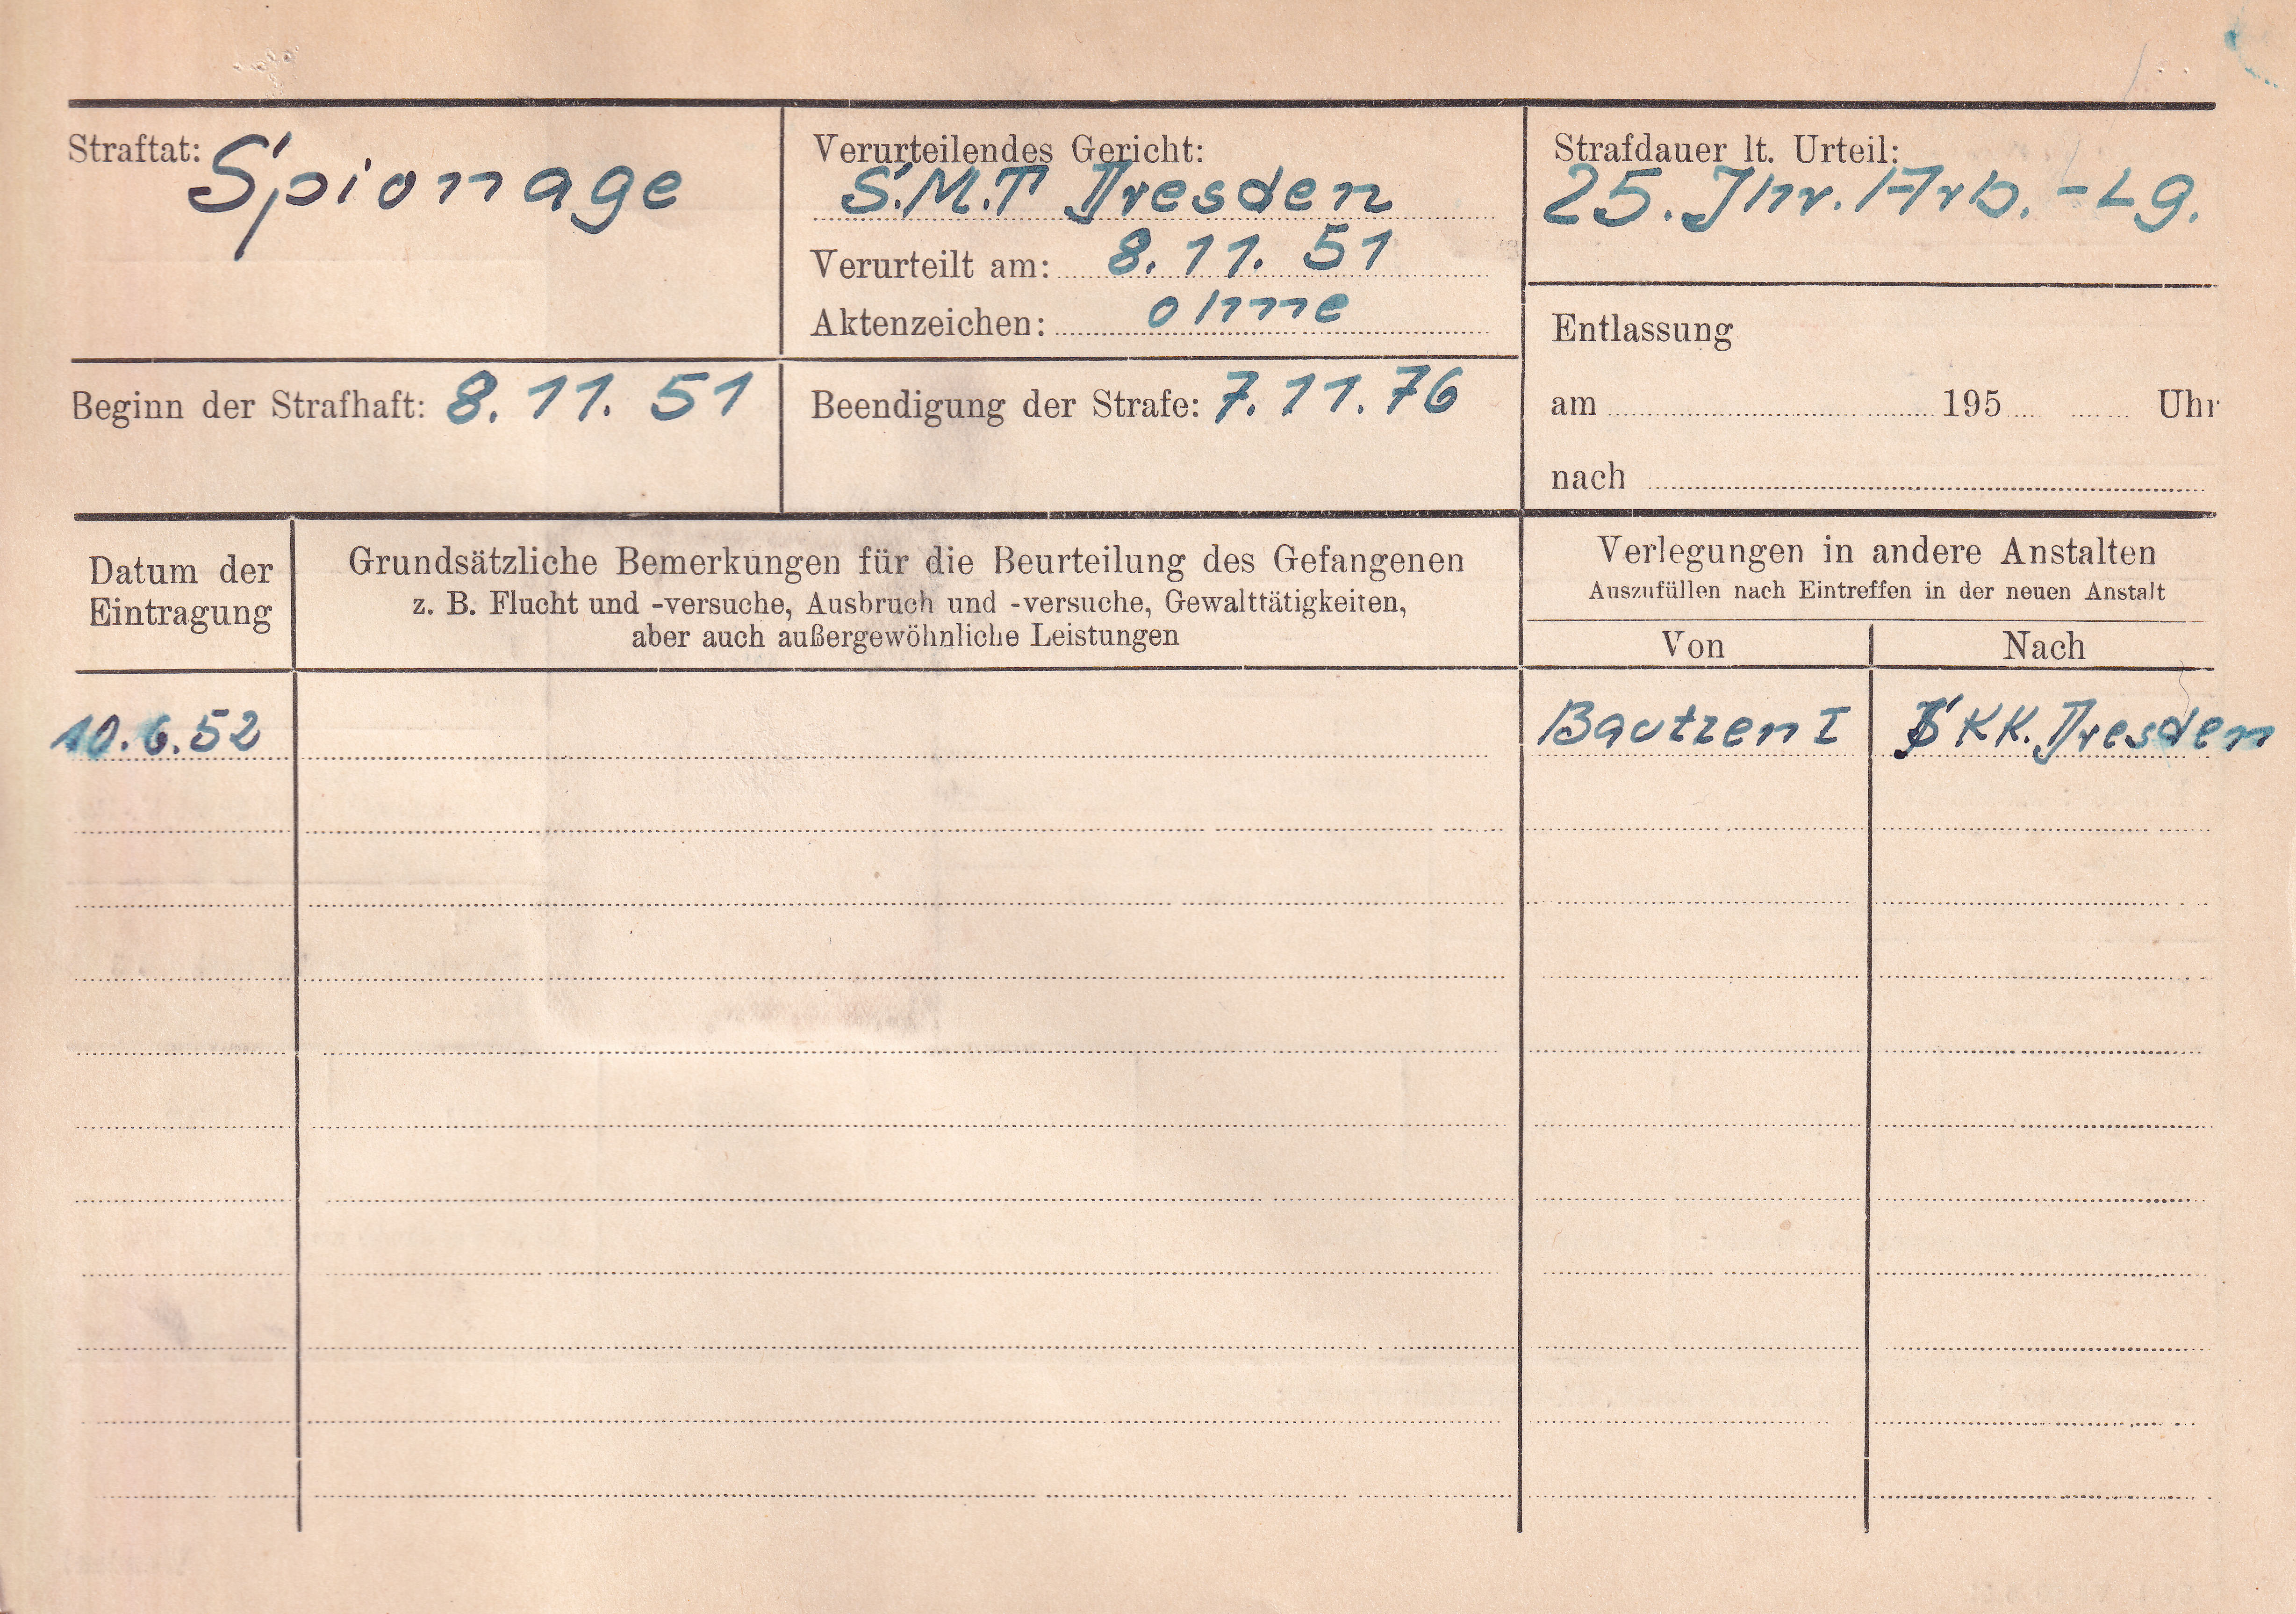 Straftat: Spionage
Verurteilendes Gericht:
S.M.T Dresden
Verurteilt am: 8. 11. 51
Aktenzeichen: ohne
Strafdauer lt. Urteil:
25. Jhr. Arb. - Lg.
Beginn der Strafhaft: 8. 11. 51
Beendigung der Strafe: 7. 11. 76
Entlassung
am 195 Uhr
nach
Datum der
Eintragung
Grundsätzliche Bemerkungen für die Beurteilung des Gefangenen
z. B. Flucht und -versuche, Ausbruch und -versuche, Gewalttätigkeiten,
aber auch außergewöhnliche Leistungen
Verlegungen in andere Anstalten
Auszufüllen nach Eintreffen in der neuen Anstalt
Von Nach
10. 6. 52 Bautzen I KK. Dresden